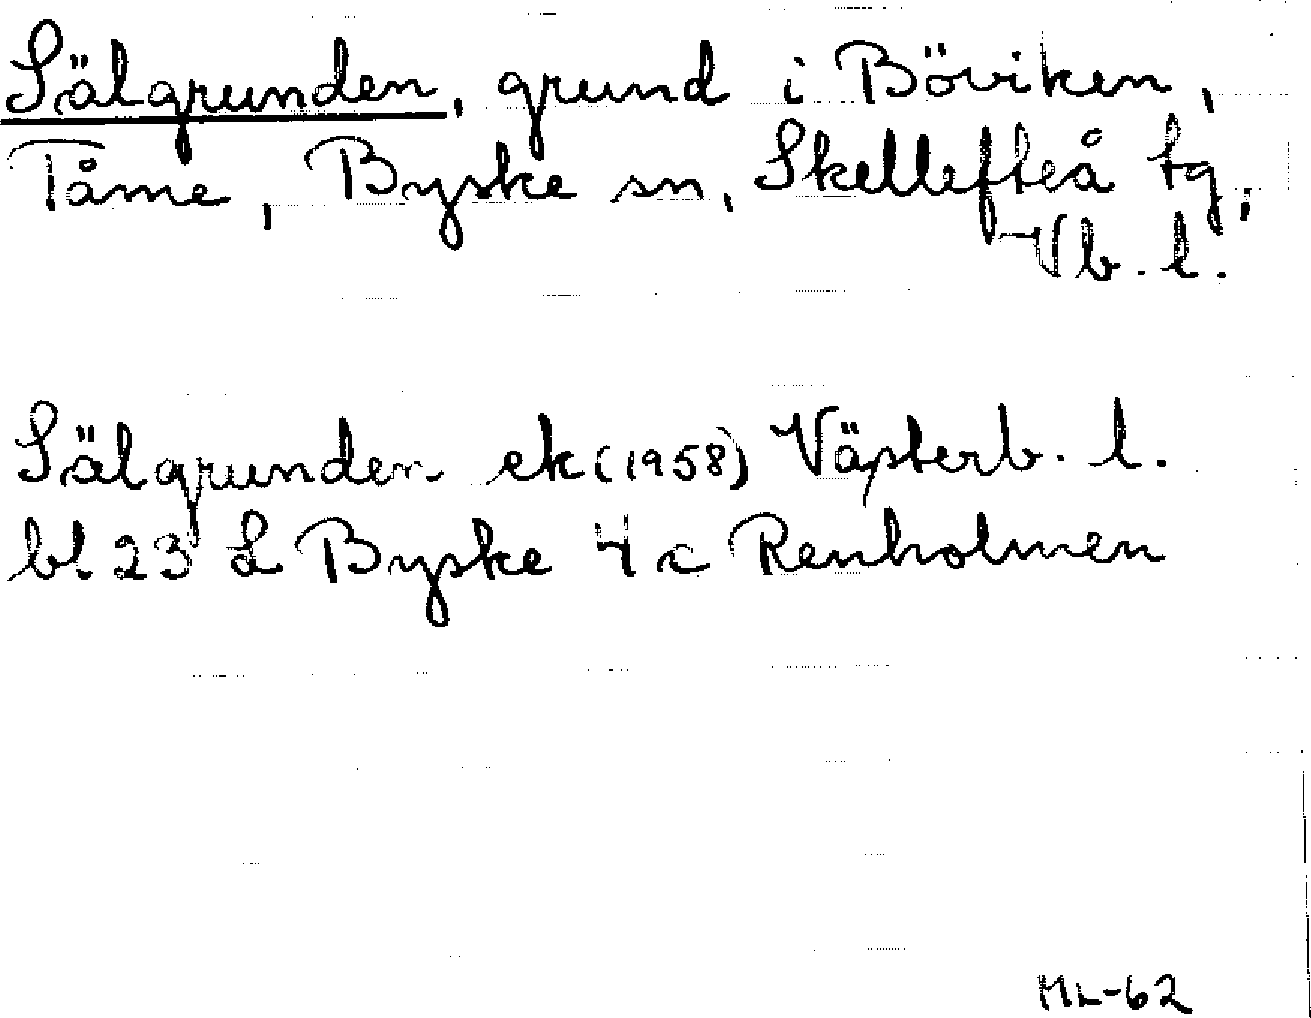 Sälgrunden, grund i Böviken,
Tåme, Byske sn, Skellefteå tg,
Vb. l.
Sälgrunden ek (1958) Västerb. l.
bl. 23 L Byske 4 c Renholmen
ML-62